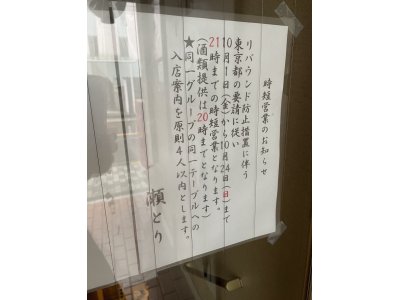 時短営業のお知らせ
リバウンド防止措置に伴う
東京都の要請に従い
10月1日(金)から10月24日(日)まで
21時までの時短営業となります。
(酒類提供は20時までとなります)
★同一グループの同一テーブルへの
入店案内を原則4人以内とします。
瀬とり